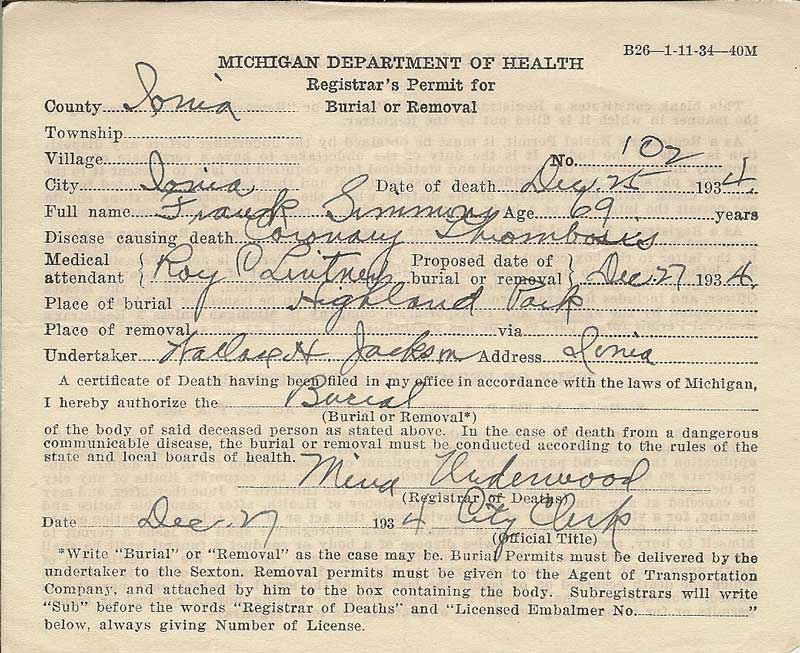 B26—1-11-34—40M
MICHIGAN DEPARTMENT OF HEALTH
Registrar's Permit for
County Ionia Burial or Removal
Township
Village No. 102
City Ionia Date of death Dec. 25 1934.
Full name Frank Simmons Age 69 years
Disease causing death Coronary Thrombosis
Medical attendant Roy C Lintner Proposed date of burial or removal Dec. 27 1934.
Place of burial Highland Park
Place of removal via
Undertaker Wallace H Jackson Address Ionia
A certificate of Death having been filed in my office in accordance with the laws of Michigan,
I hereby authorize the Burial
(Burial or Removal*)
of the body of said deceased person as stated above. In the case of death from a dangerous
communicable disease, the burial or removal must be conducted according to the rules of the
state and local boards of health.
Mina Underwood
(Registrar of Deaths)
Date Dec. 27 1934 City Clerk
(Official Title)
*Write "Burial" or "Removal" as the case may be. Burial Permits must be delivered by the
undertaker to the Sexton. Removal permits must be given to the Agent of Transportation
Company, and attached by him to the box containing the body. Subregistrars will write
"Sub" before the words "Registrar of Deaths" and "Licensed Embalmer No. "
below, always giving Number of License.